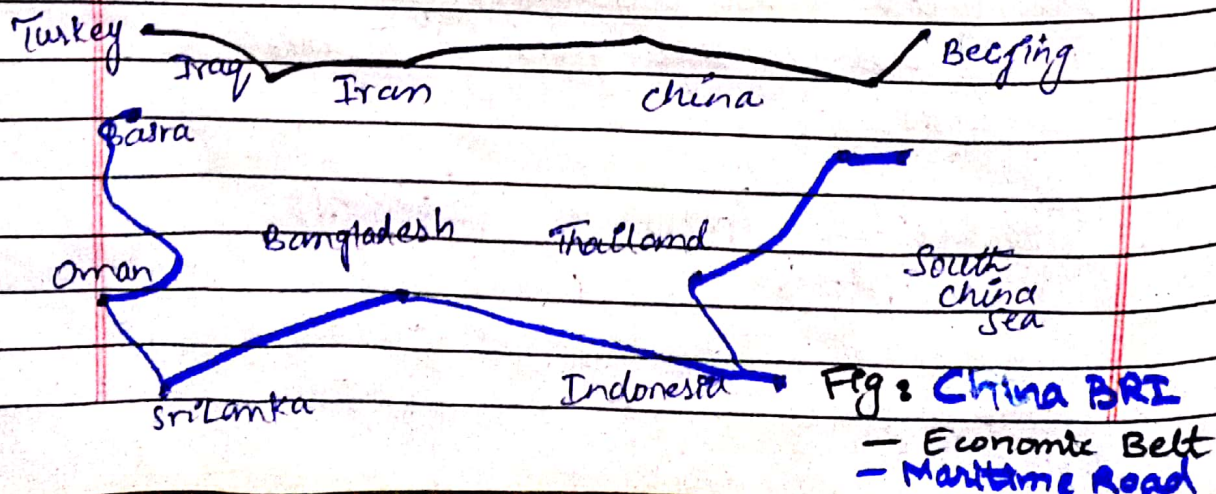 Turkey
Iraq
Iran
China
Becjing
Basra
Oman
Bangladesh
Thailand
South
China
Sea
Sri Lanka
Indonesia
Fig: China BRI
— Economic Belt
— Maritime Road